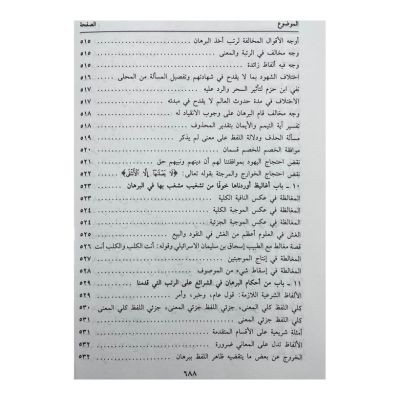 الموضوع الصفحة
أوجه الأقوال المخالفة لرتب أخذ البرهان ٥١٥
وجه مخالف في الرتبة والمعنى ٥١٥
وجه فيه ألفاظ زائدة ٥١٥
اختلاف الشهود بما لا يقدح في شهادتهم وتفصيل المسألة من المحلى ٥١٦
نفي ابن حزم لتأثير السحر والرد عليه ٥١٧
الاختلاف في مدة حدوث العالم لا يقدح في مبدئه ٥١٧
وجه مخالف قام البرهان على وجوب الانقياد له ٥١٨
تفسير آية التيمم والأيمان بتقدير المحذوف ٥١٨
مسألة الحذف ودلالة اللفظ على معنى لم يذكر ٥١٩
موافقة الخصم للخصم قسمان ٥٢٠
نقض احتجاج اليهود بموافقتنا لهم أن دينهم ونبيهم حق ٥٢١
نقض احتجاج الخوارج والمرجئة بقوله تعالى: ﴿لَا يَصْلَاهَا إِلَّا الْأَشْقَى﴾ ٥٢٢
١٠ ـ باب أغاليط أوردناها خوفًا من تشغيب مشغب بها في البرهان ٥٢٣
المغالطة في عكس النافية الكلية ٥٢٣
المغالطة في عكس الموجبة الكلية ٥٢٤
المغالطة في عكس الموجبة الجزئية ٥٢٤
الغش في العلوم أعظم من الغش في النقود والبيع ٥٢٥
قصة مغالط مع الطبيب إسحاق بن سليمان الاسرائيلي وقوله: أنت الكلب والكلب أنت ٥٢٦
المغالطة في إنتاج الموجبتين ٥٢٧
المغالطة في إسقاط شيء من الموصوف ٥٢٨
١١ ـ باب من أحكام البرهان في الشرائع على الرتب التي قدمنا ٥٢٩
الألفاظ الشرعية اللازمة: قول عام، وخبر، وأمر ٥٢٩
كلي اللفظ كلي المعنى، جزئي اللفظ جزئي المعنى، جزئي اللفظ كلي المعنى ٥٣٠
كلي اللفظ جزئي المعنى ٥٣١
أمثلة شريعية على الأقسام المتقدمة ٥٣١
الألفاظ تدل على المعاني ضرورة ٥٣٢
الخروج عن بعض ما يقتضيه ظاهر اللفظ ببرهان ٥٣٢
٦٨٨